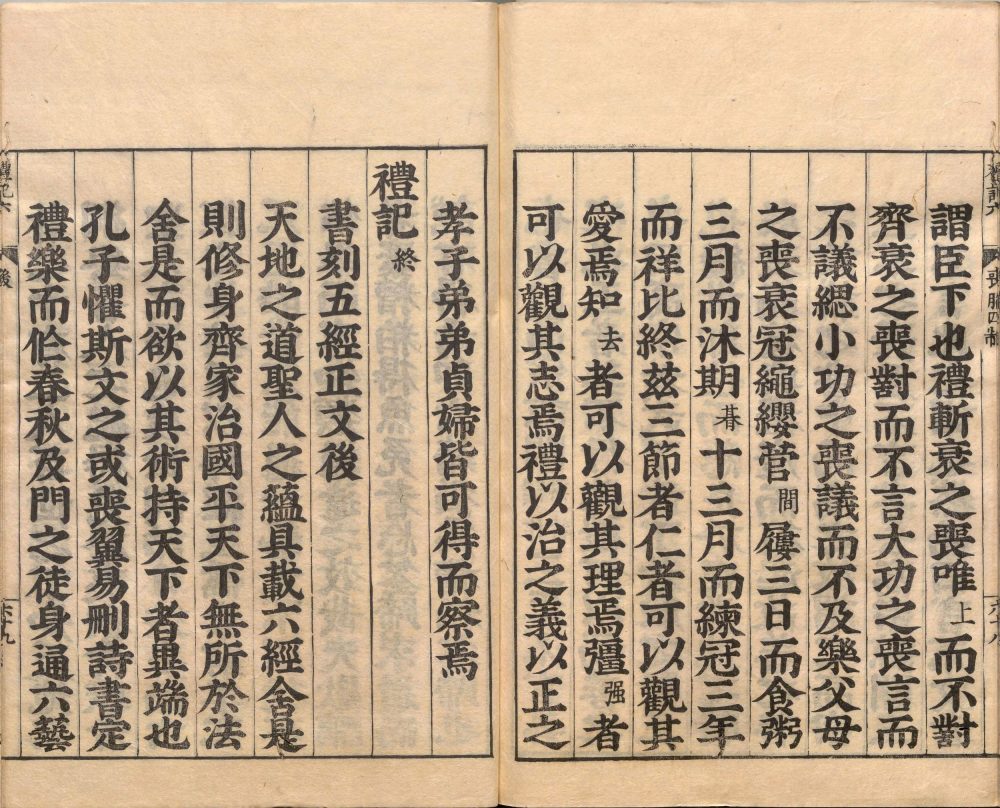 謂臣下也禮斬衰之喪唯上而不對
齊衰之喪對而不言大功之喪言而
不議緦小功之喪議而不及樂父母
之喪衰冠繩纓菅間屨三日而食粥
三月而沐期朞十三月而練冠三年
而祥比終茲三節者仁者可以觀其
愛焉知去者可以觀其理焉彊强者
可以觀其志焉禮以治之義以正之
孝子弟弟貞婦皆可得而察焉
禮記終
書刻五經正文後
天地之道聖人之蘊具載六經舍是
則修身齊家治國平天下無所於法
舍是而欲以其術持天下者異端也
孔子懼斯文之或喪翼易刪詩書定
禮樂而伀春秋及門之徒身通六藝
禮記六
後